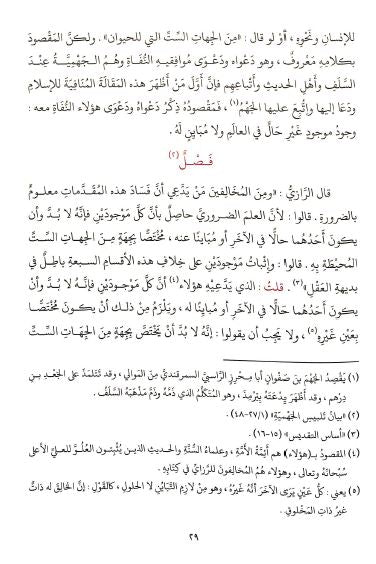 للإنسانِ ونَحْوِهِ، أوْ لو قال: «مِنَ الجهاتِ السِّتِّ التي للحيوان». ولكنَّ المَقْصودَ
بكلامِهِ مَعْروفٌ، وهو دَعْواه ودَعْوَى مُوافِقيهِ النُّفاةِ وهُـمُ الـجَهْمِيَّةُ عِنْدَ
السَّلَفِ وأهْلِ الحديثِ وأتْباعِهِم فإنَّ أوَّلَ مَنْ أظْهَرَ هذه المَقالَةَ المُنافِيَةَ للإسلامِ
ودَعَا إليها واتُّبِعَ عليها الجَهْمُ(١)، فَمَقْصودُهُ ذِكْرُ دَعْواهُ ودَعْوَى هؤلاء النُّفاةِ معه:
وجودُ موجودٍ غَيْرِ حَالٍّ في العالَمِ ولا مُبايِنٍ لَهُ.
فَـصْـلٌ(٢)
قال الرَّازِيُّ: «ومِنَ المُخَالِفينَ مَنْ يَدَّعِي أنَّ فَسَادَ هذه المُقَدِّماتِ معلومٌ
بالضرورةِ. قالوا: لأنَّ العلمَ الضروريَّ حاصِلٌ بأنَّ كلَّ مَوْجودَيْنِ فإنَّهُ لا بُدَّ وأن
يكونَ أحَدُهُما حالًّا في الآخَرِ أو مُبايِنًا عنه، مُخْتَصًّا بِجِهةٍ مِنَ الجهاتِ السِّتِّ
المُحيطَةِ بِهِ. قالوا: وإثْباتُ مَوْجودَيْنِ على خِلافِ هذه الأقسامِ السبعةِ باطِلٌ في
بديهةِ العَقْلِ»(٣). قلتُ: الذي يَدَّعِيهِ هؤلاءِ(٤) أنَّ كلَّ مَوْجودَيْنِ فإنَّـهُ لا بُدَّ وأنْ
يَكونَ أحَدُهُما حالًّا في الآخَرِ أو مُبايِنًا له، ويَلْزَمُ مِنْ ذلك أنْ يكونَ مُخْتَصًّا
بِعَيْنِ غَيْرِهِ(٥)، ولا يجبُ أن يقولوا: إنَّهُ لا بُدَّ أنْ يَخْتَصَّ بِجِهةٍ مِنَ الجهاتِ السِّتِّ
(١) يَقْصِدُ الجَهْمَ بْنَ صَفْوانَ أبا مـحرزٍ الرَّاسِبِيَّ السمرقنديَّ مِنَ المَوالي، وقد تَتَلْمَذَ على الجَعْدِ بـنِ
دِرْهم، وقد أظْهَرَ بِدْعَتَهُ بِتِرْمِذَ، وهو المُتَكَلِّمُ الذي ذَمَّهُ وذَمَّ مَذْهَبَهُ السَّلَفُ.
(٢) «بيانُ تلبيسِ الجَهْمِيَّةِ» (٢٧/١-٤٨).
(٣) «أساس التقديس» (١٥-١٦).
(٤) المقصودُ بـ«هؤلاءِ» هم أئِمَّةُ الأُمَّةِ، وعلماءُ السُّنَّةِ والحديثِ الذين يُثْبِتون العُلُوَّ للعليِّ الأعلى
سُبْحَانَهُ وتعالى، وهؤلاء هُمُ المُخالِفونَ للرَّازي في كِتابِهِ.
(٥) يعني: كلُّ عَيْنٍ يَرَى الآخَرَ أنَّهُ غَيْرُهُ، وهو مِنْ لازِمِ التَّبايُنِ لا الحلولِ، كالقَوْلِ: إنَّ الخالِقَ له ذاتٌ
غيرُ ذاتِ المَخْلوقِ.
٢٩